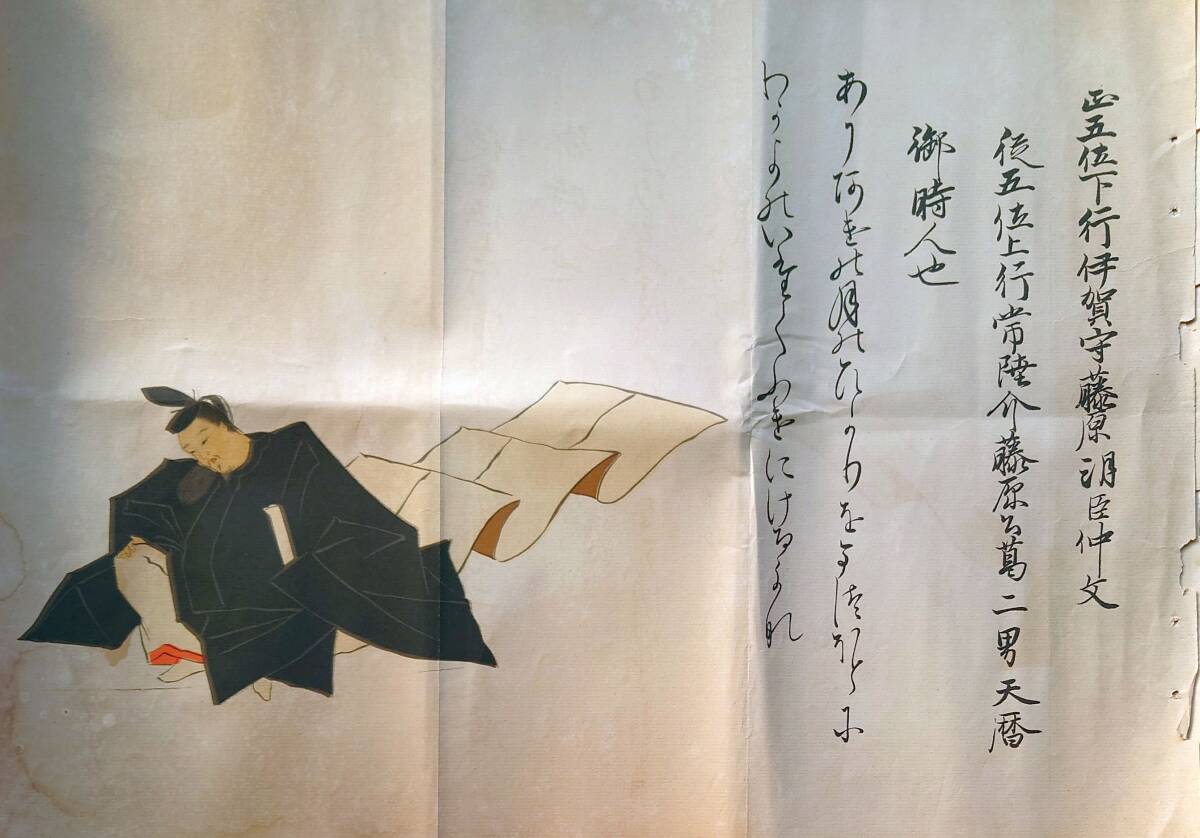 正五位下行伊賀守藤原朝臣仲文
従五位上行常陸介藤原公葛二男天暦
御時人也
あり阿けの月のひかりをまつほとに
わかよのいたくふけにけるかな